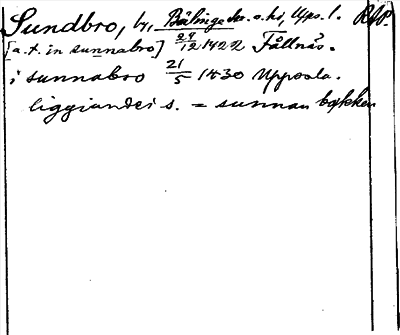 Sundbro, by, Bälinge sn. o. hd, Upps. l. RAP.
[a. t. in sunnabro] 29/12 1422 Fållnäs.
i sunnabro 21/5 1430 Uppsala.
liggiandei s. = sunnan bækken